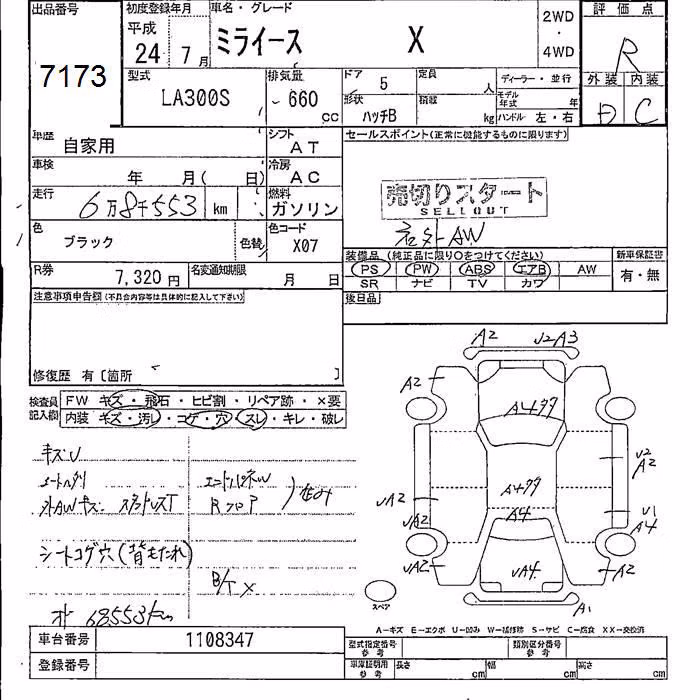 出品番号 初度登録年月 車名・グレード 評価点
平成 2WD
7173 24 7月 ミライース X ・ R
4WD
型式 排気量 ドア 5 定員 人 ディーラー・並行 外装 内装
LA300S 660 cc 形状 ハッチB 積載 kg モデル年式 年 C
ハンドル 左・右
車歴 自家用 シフト AT セールスポイント(正常に機能するものに限ります)
車検 年 月( 日) 冷房 AC
走行 6万8千553 km 燃料 ガソリン 売切りスタート
SELLOUT
色 ブラック 色替 色コード X07 社外AW
装備品(純正品に限り○をつけてください) 新車保証書
R券 7,320円 名変通知期限 月 日 PS PW ABS エアB AW 有・無
SR ナビ TV カワ
注意事項申告欄(不具合内容等は具体的に記入して下さい) 後日品
修復歴 有〔箇所 〕
検査員記入欄 FW キズ・飛石・ヒビ割・リペア跡・×要
内装 キズ・汚レ・コゲ・穴・スレ・キレ・破レ
キズU
シートヘタリ エンドパネルW
外AWキズ スタッドレスT RフロアP 歪み
シートコゲ穴(背もたれ)
B/T×
オド 68553km
A2 U2 A3
A2
A4
U2
A2
UA2
A4
UA2 A4 U1
A4
UA2 UA4 A2
スペア A1
A-キズ E-エクボ U-凹み W-補修跡 S-サビ C-腐食 XX-交換済
車台番号 1108347 型式指定番号 参考 類別区分番号 参考
登録番号 車庫証明用 参考 長さ cm 幅 cm 高さ cm